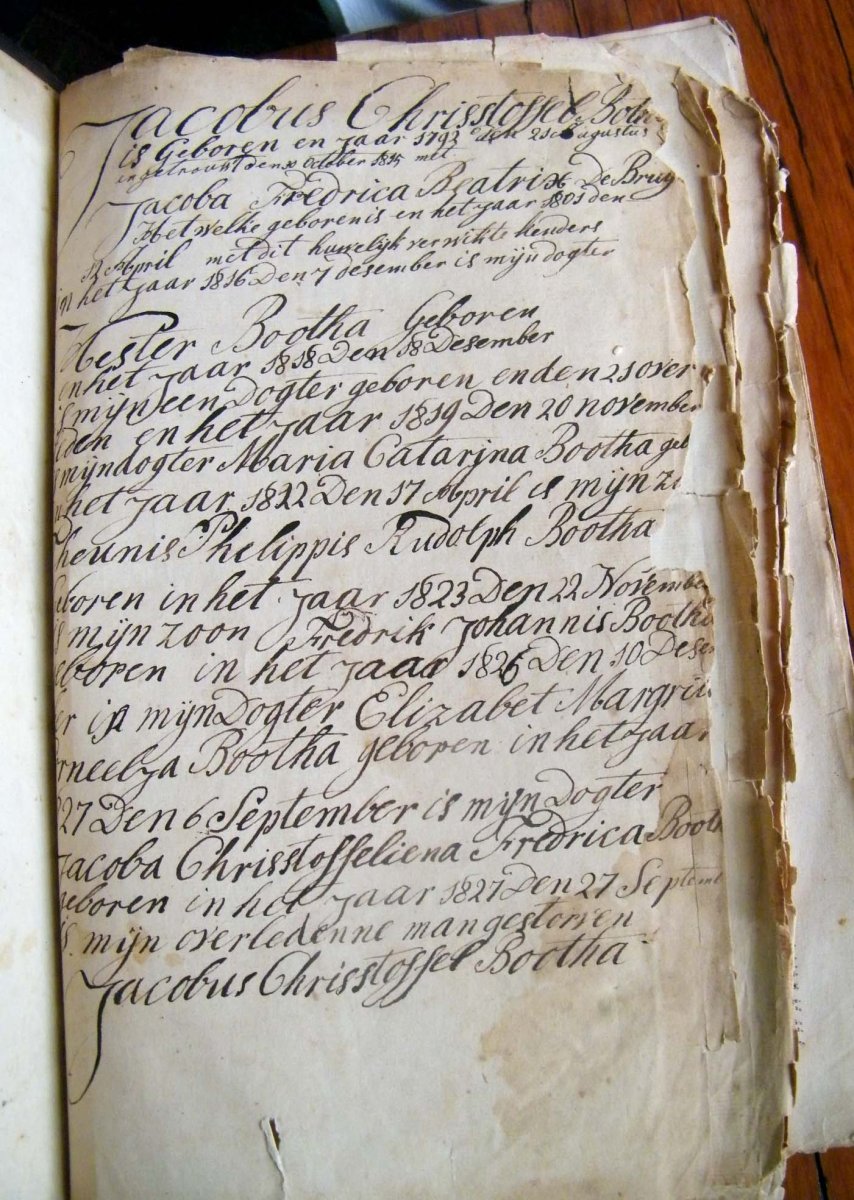 Jacobus Chrisstoffel
is Geboren en Jaar 1793 den 21 augustus
en getrouwt den October 1815 met
Jacoba Fredrica Beatrix De Bruy
Het welke geboren is en het Jaar 1801 den
12 April met dit huwelijk verwikte kenders
in het Jaar 1816 Den 7 desember is mijn dogter
Hester Bootha Geboren
en het Jaar 1818 Den 18 Desember
is mijn een Dogter geboren en den 21 over
leden en het Jaar 1819 Den 20 november
is mijn dogter Maria Catarina Bootha geb
het Jaar 1822 Den 17 April is mijn zo
Theunis Phelippis Rudolph Bootha
geboren in het Jaar 1823 Den 22 November
is mijn zoon Fredrik Johannis Bootha
geboren in het Jaar 1826 Den 10 Desem
er is mijn Dogter Elizabet Margrit
rneelza Bootha geboren in het Jaar
27 Den 6 September is mijn Dogter
Jacoba Chrisstoffeliena Fredrica Booth
geboren in het Jaar 1827 Den 27 Septemb
is mijn overledenne man gestorven
Jacobus Chrisstoffel Bootha